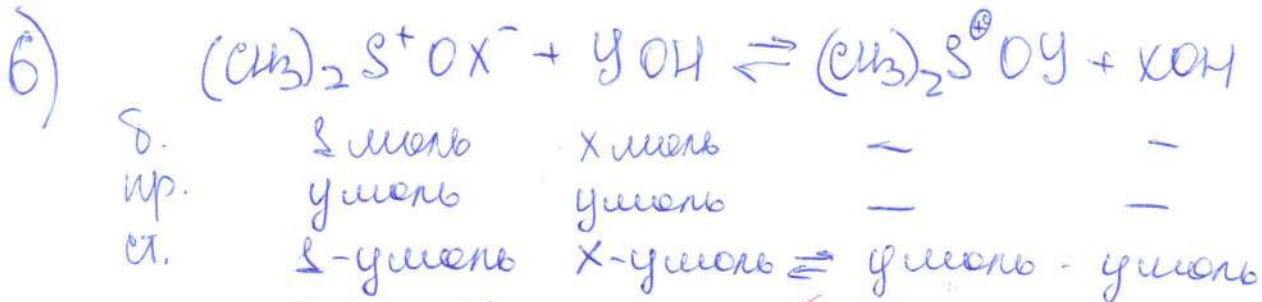 б) (CH₃)₂S⁺OX⁻ + YOH ⇌ (CH₃)₂S⊕OY + XOH
б. 1 моль x моль — —
пр. y моль y моль — —
ст. 1-y моль x-y моль ⇌ y моль - y моль